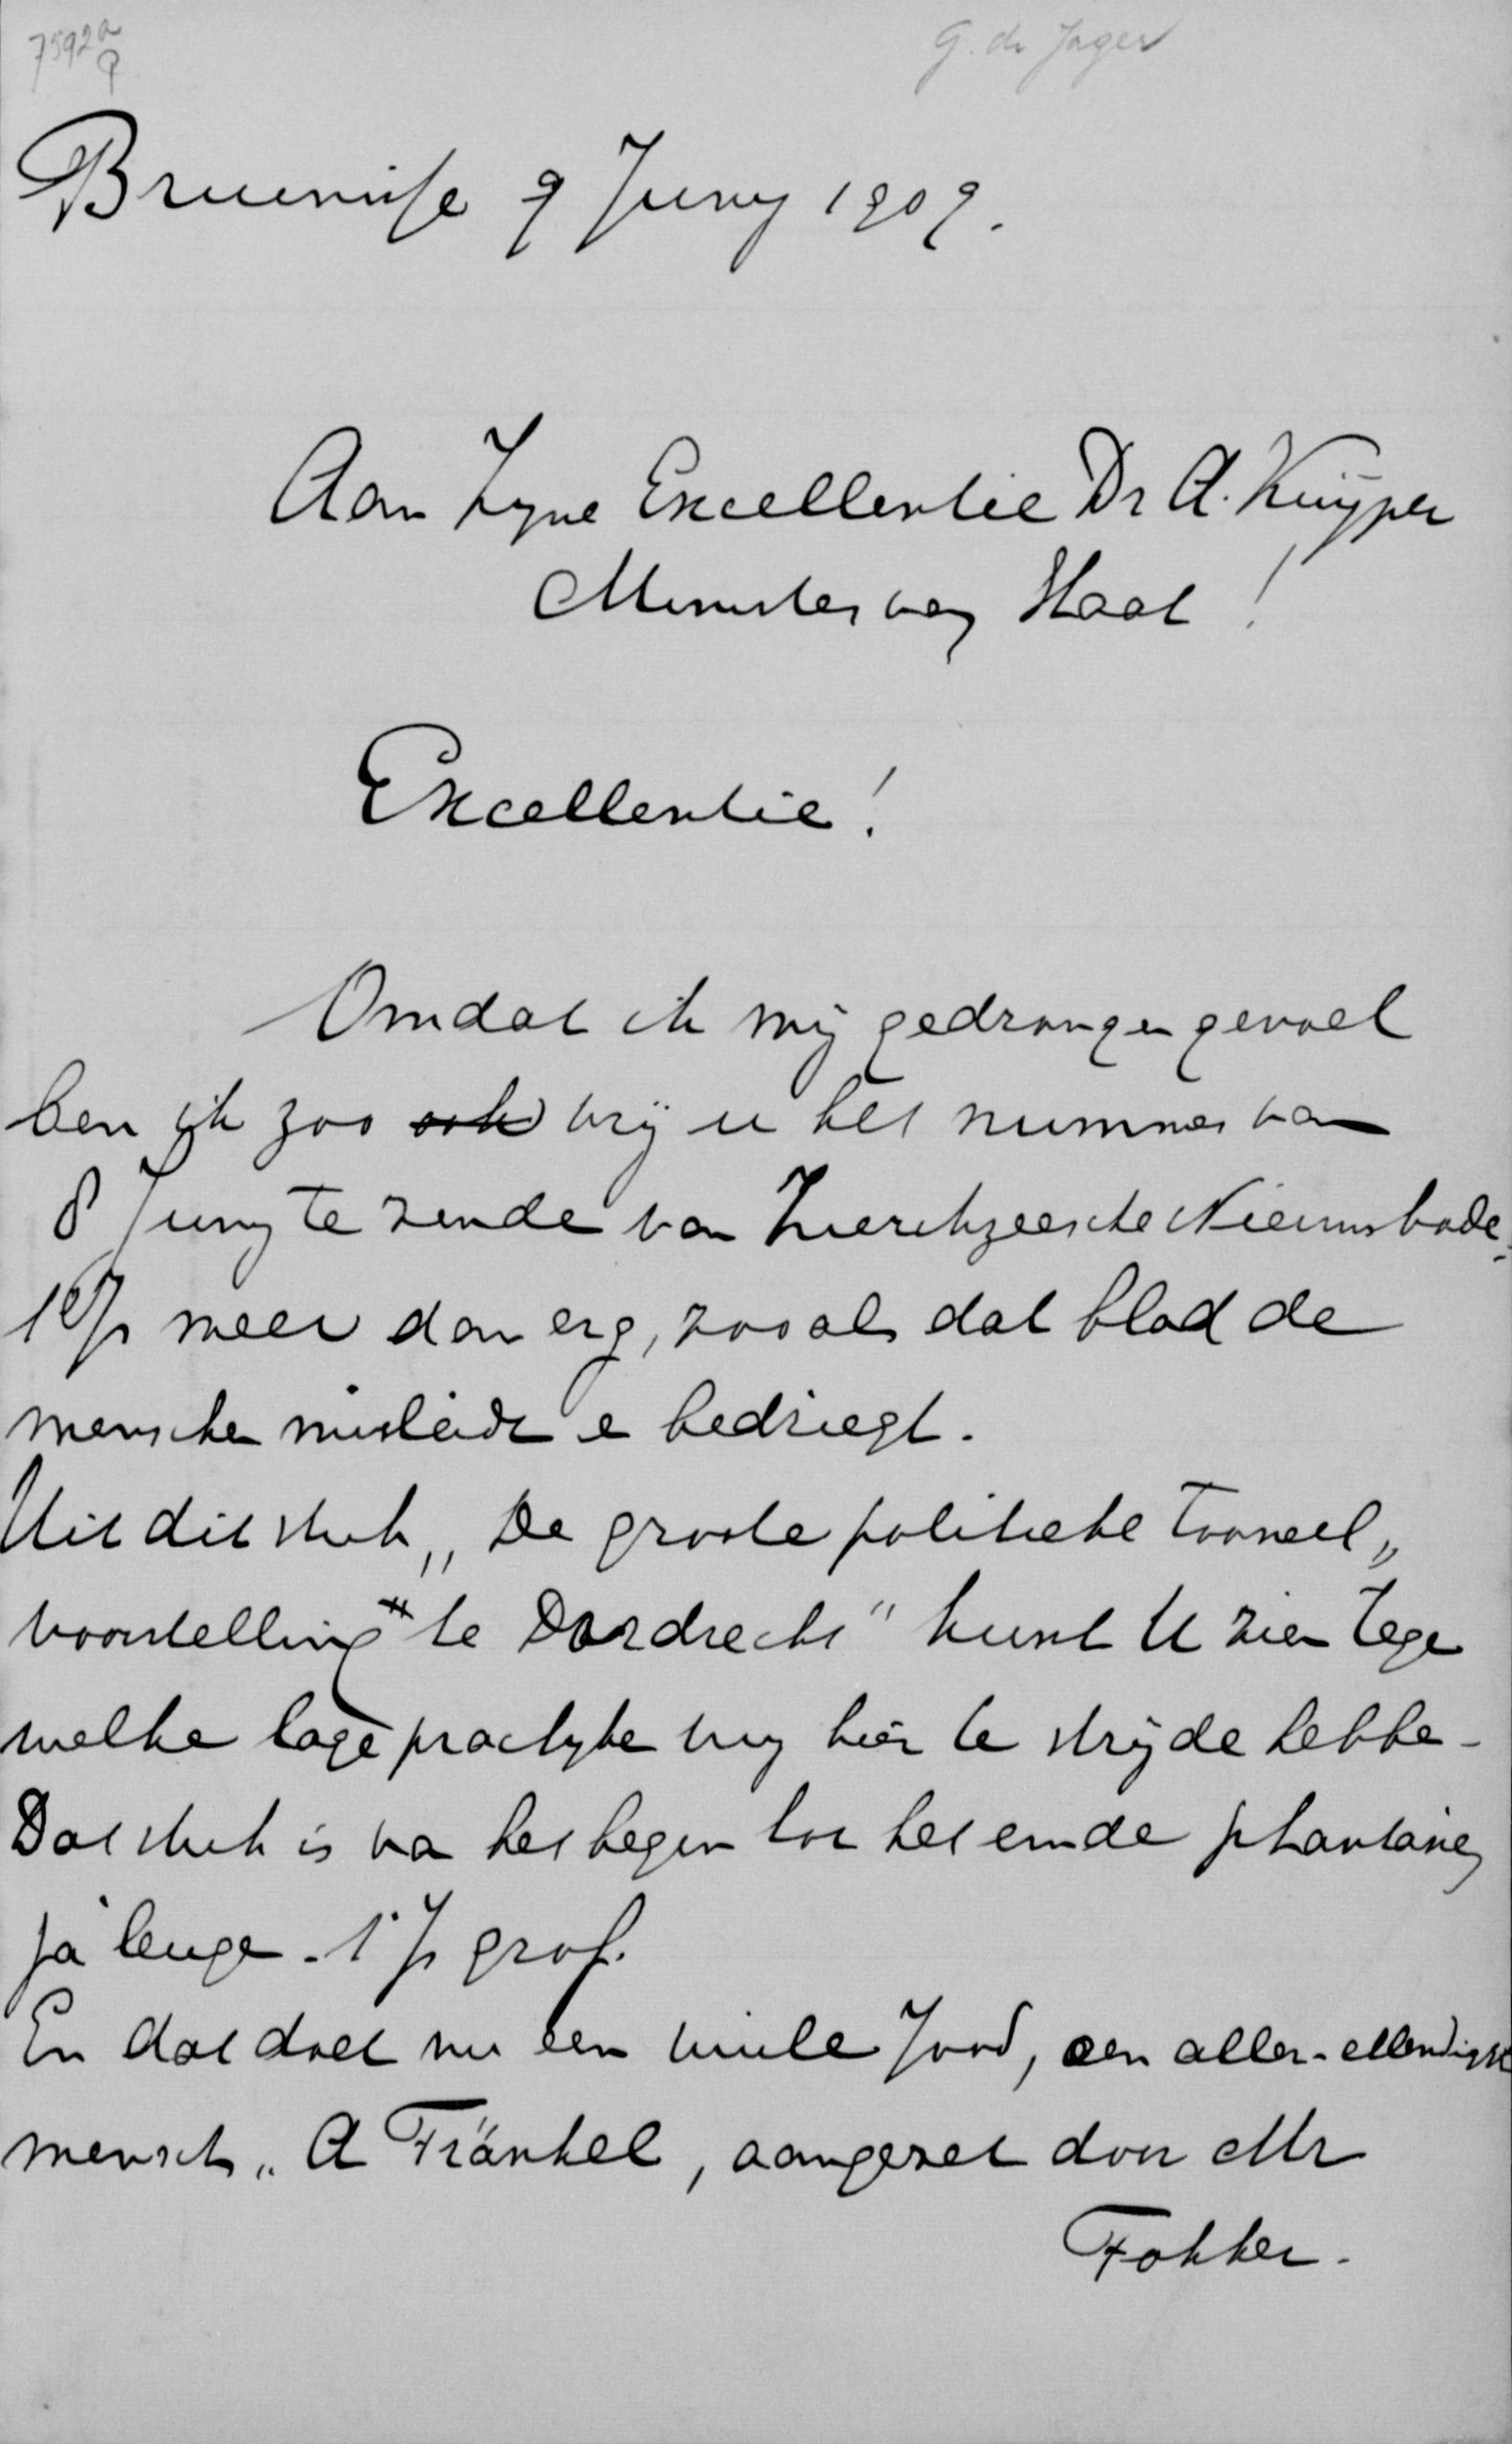 7592a
9
G. de Jager
Bruinisse 9 Juny 1909.
Aan Zyne Excellentie Dr A. Kuijper
Minister van Staat !
Excellentie !
Omdat ik mij gedrongen gevoel
ben ik zoo ook vrij u het nummer van
8 Juny te zende van Zierikzeesche Nieuwsbode.
't Is meer dan erg, zooals dat blad de
mensche misleidt e bedriegt.
Uit dit stuk „ De groote politieke Tooneel„
voorstelling te Dordrecht" kunt U zien tege
welke lage practyke wy hier te strijde hebbe -
Dat stuk is va het begin tot het einde phantasie,
ja leuge. 't Is grof.
En dat doet nu een vuile Jood, een aller-ellendigst
mensch „ A Fränkel, aangezet door Mr
Fokker.